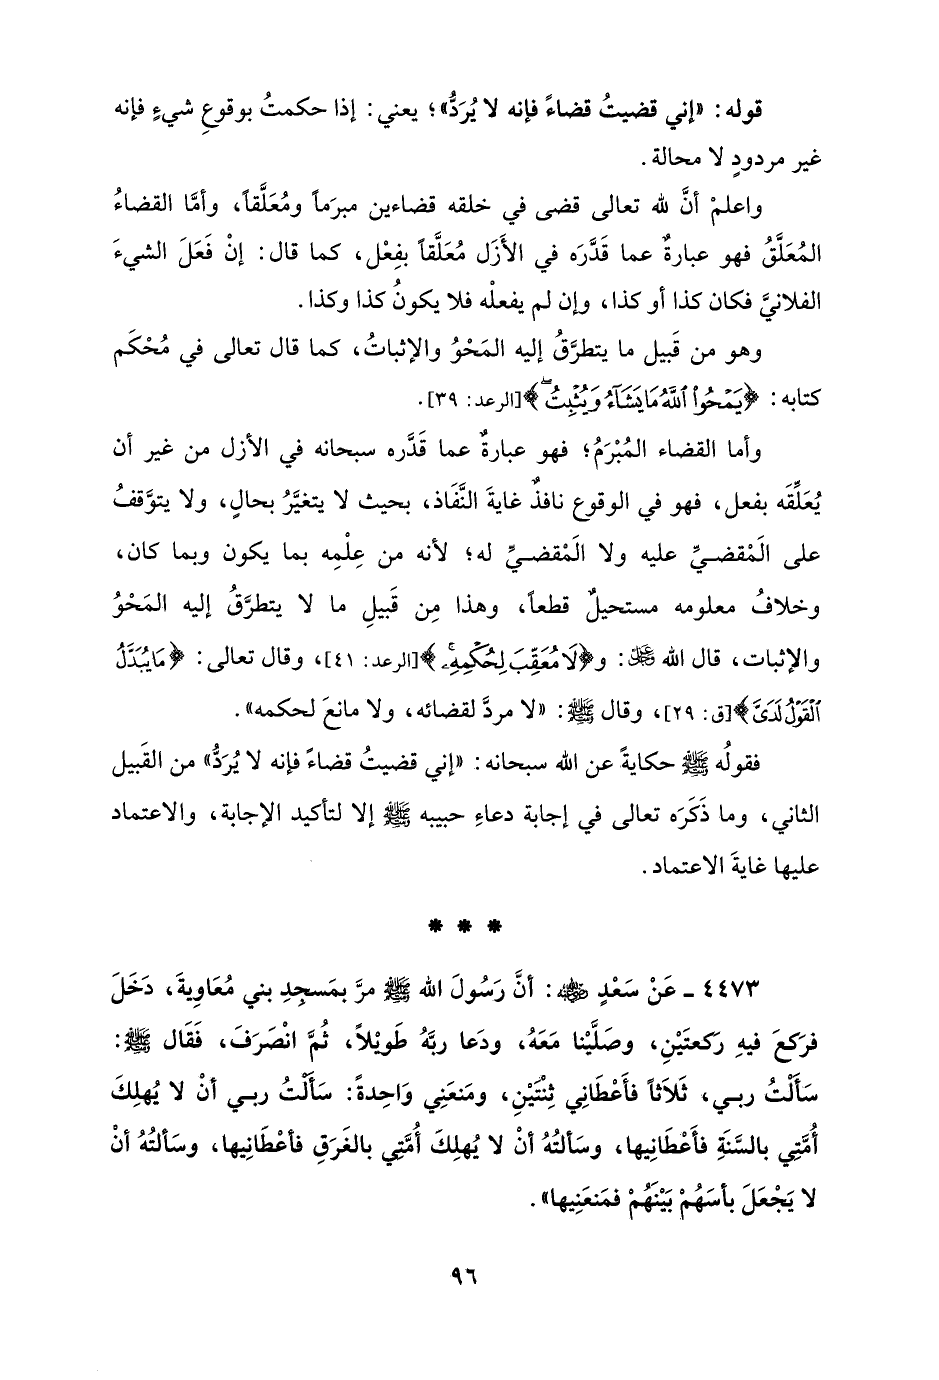 قوله: «إني قضيتُ قضاءً فإنه لا يُرَدُّ»؛ يعني: إذا حكمتُ بوقوعِ شيءٍ فإنه
غير مردودٍ لا محالة.
واعلمْ أنَّ لله تعالى قضى في خلقه قضاءين مبرَماً ومُعَلَّقاً، وأمَّا القضاءُ
المُعَلَّقُ فهو عبارةٌ عما قَدَّرَه في الأَزَل مُعَلَّقاً بفِعْل، كما قال: إنْ فَعَلَ الشيءَ
الفلانيَّ فكان كذا أو كذا، وإن لم يفعلْه فلا يكونُ كذا وكذا.
وهو من قَبيل ما يتطرَّقُ إليه المَحْوُ والإثباتُ، كما قال تعالى في مُحْكَم
كتابه: ﴿يَمْحُوا۟ ٱللَّهُ مَا يَشَآءُ وَيُثْبِتُ ۖ﴾[الرعد: ٣٩].
وأما القضاء المُبْرَمُ؛ فهو عبارةٌ عما قَدَّره سبحانه في الأزل من غير أن
يُعَلِّقَه بفعل، فهو في الوقوع نافذٌ غايةَ النَّفَاذ، بحيث لا يتغيَّرُ بحالٍ، ولا يتوَّقفُ
على الَمْقضيِّ عليه ولا الَمْقضيِّ له؛ لأنه من عِلْمِه بما يكون وبما كان،
وخلافُ معلومه مستحيلٌ قطعاً، وهذا مِن قَبيلِ ما لا يتطرَّقُ إليه المَحْوُ
والإثبات، قال الله ﷻ: و﴿لَا مُعَقِّبَ لِحُكْمِهِۦ ۚ﴾[الرعد: ٤١]، وقال تعالى: ﴿مَا يُبَدَّلُ
ٱلْقَوْلُ لَدَىَّ﴾[ق: ٢٩]، وقال ﷺ: «لا مردَّ لقضائه، ولا مانعَ لحكمه».
فقولُه ﷺ حكايةً عن الله سبحانه: «إني قضيتُ قضاءً فإنه لا يُرَدُّ» من القَبيل
الثاني، وما ذَكَرَه تعالى في إجابة دعاءِ حبيبه ﷺ إلا لتأكيد الإجابة، والاعتماد
عليها غايةَ الاعتماد.
* * *
٤٤٧٣ ـ عَنْ سَعْدٍ ﵁: أنَّ رَسُولَ الله ﷺ مرَّ بمَسجِدِ بني مُعَاوِيةَ، دَخَلَ
فرَكعَ فيهِ رَكعتَيْنِ، وصَلَّيْنا مَعَهُ، ودَعا ربَّهُ طَوِيْلاً، ثُمَّ انْصَرَفَ، فَقَال ﷺ:
سَأَلْتُ ربي، ثَلاَثاً فأَعْطَانِي ثِنْتَيْنِ، ومَنعَنِي وَاحِدةً: سَأَلْتُ ربي أنْ لا يُهلِكَ
أُمَّتِي بالسَّنَةِ فأَعْطَانِيها، وسَألتُهُ أنْ لا يُهلِكَ أُمَّتِي بالغَرَقِ فأعْطَانِيها، وسَألتُهُ أنْ
لا يَجْعَلَ بأسَهُمْ بَيْنَهُمْ فمَنعَنِيها».
٩٦